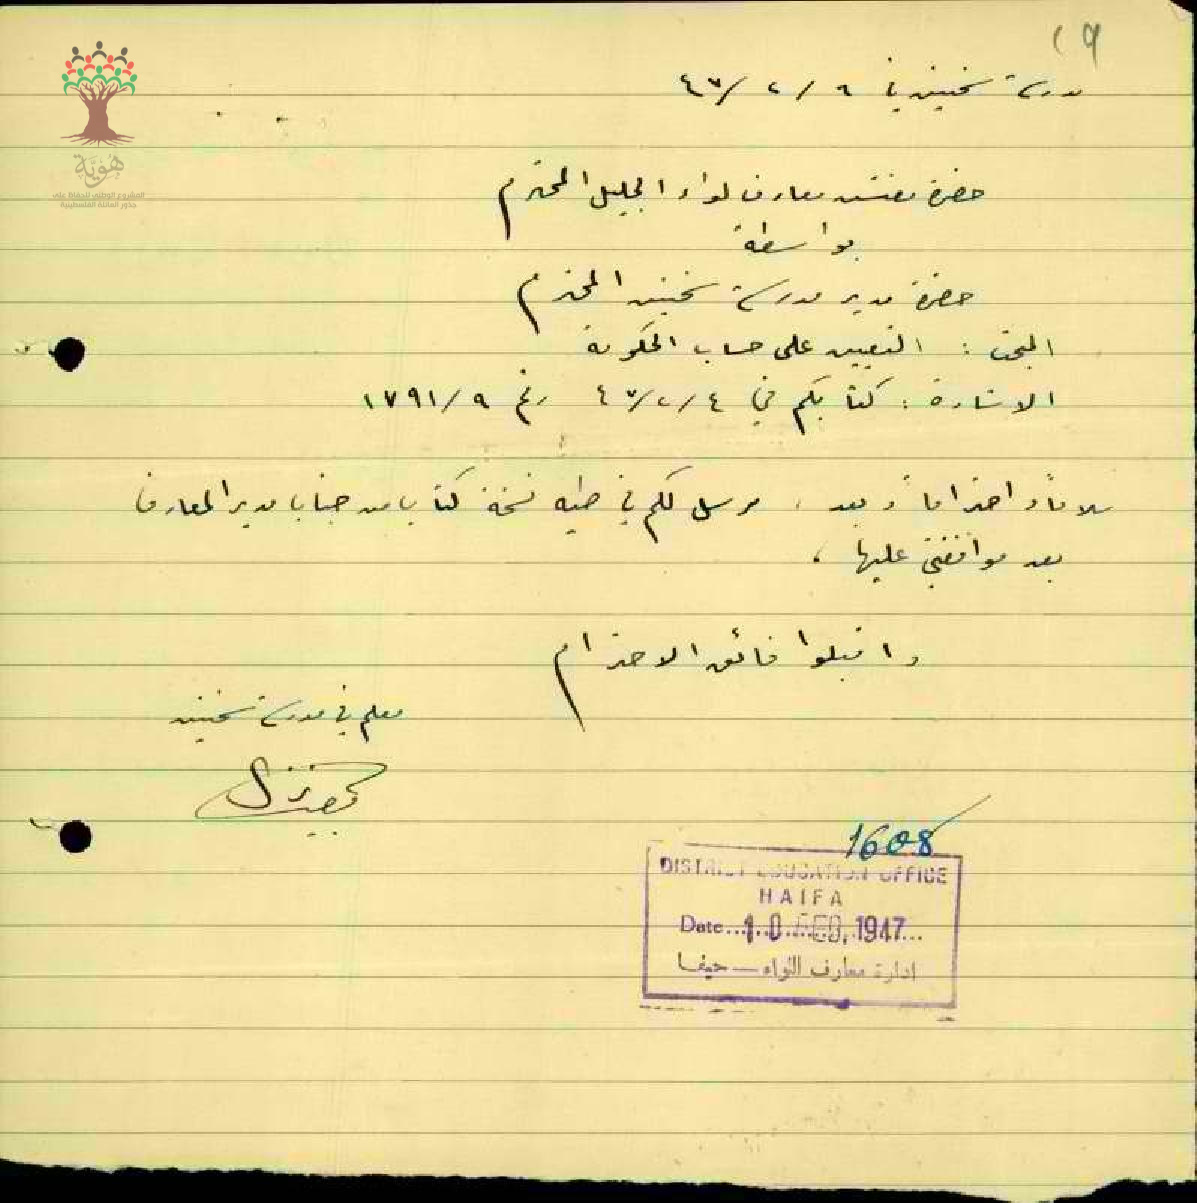 ١٩
مدرسة سخنين في ٦ / ٢ / ٤٧
هُوِيَّة
المشروع الوطني للحفاظ على
جذور العائلة الفلسطينية
حضرة مفتش معارف لواء الجليل المحترم
بواسطة
حضرة مدير مدرسة سخنين المحترم
المبحث : التعيين على حساب الحكومة
الاشارة : كتابكم في ٤ / ٢ / ٤٧ رقم ٩ / ١٧٩١
سلاماً و احتراماً و بعد ، مرسل لكم في طيه نسخة كتاب من جناب مدير المعارف
بعد موافقتي عليها ،
و اقبلوا فائق الاحترام
معلم في مدرسة سخنين
1608
DISTRICT EDUCATION OFFICE
HAIFA
Date...10 FEB, 1947...
ادارة معارف اللواء — حيفا